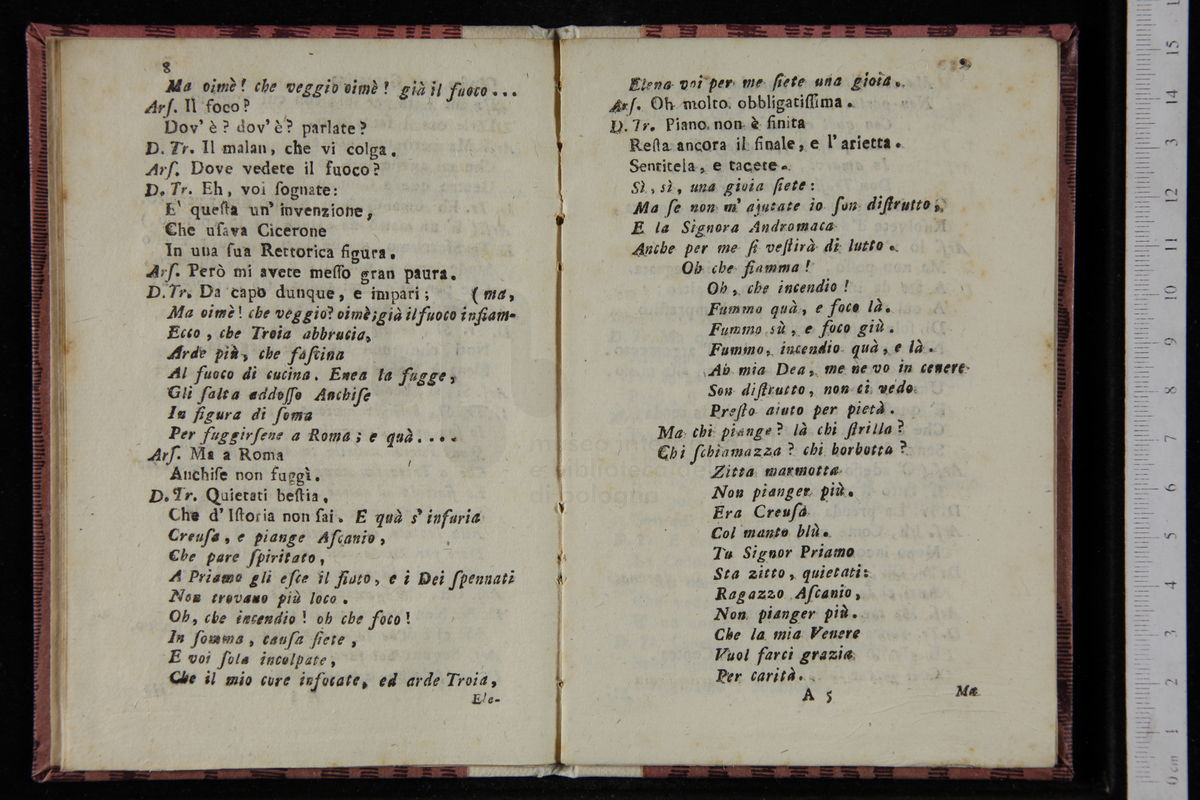 8
Ma oimè! che veggio oimè! già il fuoco...
Arſ. Il foco?
Dov' è? dov' è? parlate?
D. Tr. Il malan, che vi colga.
Arſ. Dove vedete il fuoco?
D. Tr. Eh, voi ſognate:
E' queſta un' invenzione,
Che uſava Cicerone
In una ſua Rettorica figura.
Arſ. Però mi avete meſſo gran paura.
D. Tr. Da capo dunque, e impari; (ma,
Ma oimè! che veggio? oimè; già il fuoco infiam-
Ecco, che Troia abbrucia,
Arde più, che faſcina
Al fuoco di cucina. Enea la fugge,
Gli ſalta addoſſo Anchiſe
In figura di ſoma
Per fuggirſene a Roma; e quà....
Arſ. Ma a Roma
Anchiſe non fuggì.
D. Tr. Quietati beſtia,
Che d' Iſtoria non ſai. E quà s' infuria
Creuſa, e piange Aſcanio,
Che pare ſpiritato,
A Priamo gli eſce il fiato, e i Dei ſpennati
Non trovano più loco.
Oh, che incendio! oh che foco!
In ſomma, cauſa ſiete,
E voi ſola incolpate,
Che il mio core infocate, ed arde Troia,
Ele-
9
Elena voi per me ſiete una gioia.
Arſ. Oh molto obbligatiſſima.
D. Tr. Piano non è finita
Reſta ancora il finale, e l' arietta.
Sentitela, e tacete.
Sì, sì, una gioia ſiete:
Ma ſe non m' ajutate io ſon diſtrutto,
E la Signora Andromaca
Anche per me ſi veſtirà di lutto.
Oh che fiamma!
Oh, che incendio!
Fummo quà, e foco là.
Fummo sù, e foco giù.
Fummo, incendio quà, e là.
Ah mia Dea, me ne vo in cenere
Son diſtrutto, non ci vedo
Preſto aiuto per pietà.
Ma chi piange? là chi ſtrilla?
Chi ſchiamazza? chi borbotta?
Zitta marmotta
Non pianger più.
Era Creuſa
Col manto blù.
Tu Signor Priamo
Sta zitto, quietati:
Ragazzo Aſcanio,
Non pianger più.
Che la mia Venere
Vuol farci grazia
Per carità.
A 5
Ma